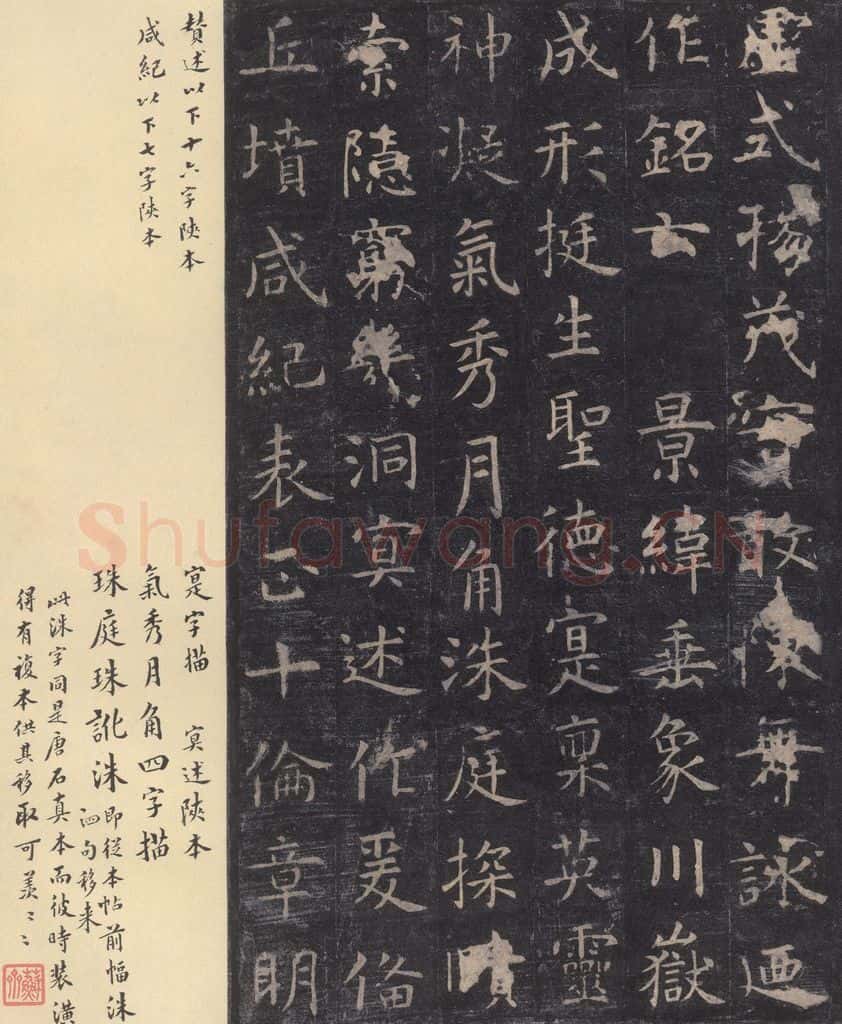 虛式揚茂實敢陳舞詠迺
作銘云 景緯垂象川嶽
成形挺生聖德寔稟英靈
神凝氣秀月角洙庭探賾
索隱窮幾洞冥述作爰俻
丘墳咸紀表正十倫章明
贊述以下十六字陝本
咸紀以下七字陝本
寔字描 冥述陝本
氣秀月角四字描
珠庭珠訛洙即從本帖前幅洙
泗句移来
此洙字同是唐石真本而彼時装潢
得有複本供其移取可羨〻〻
Shufawang.CN